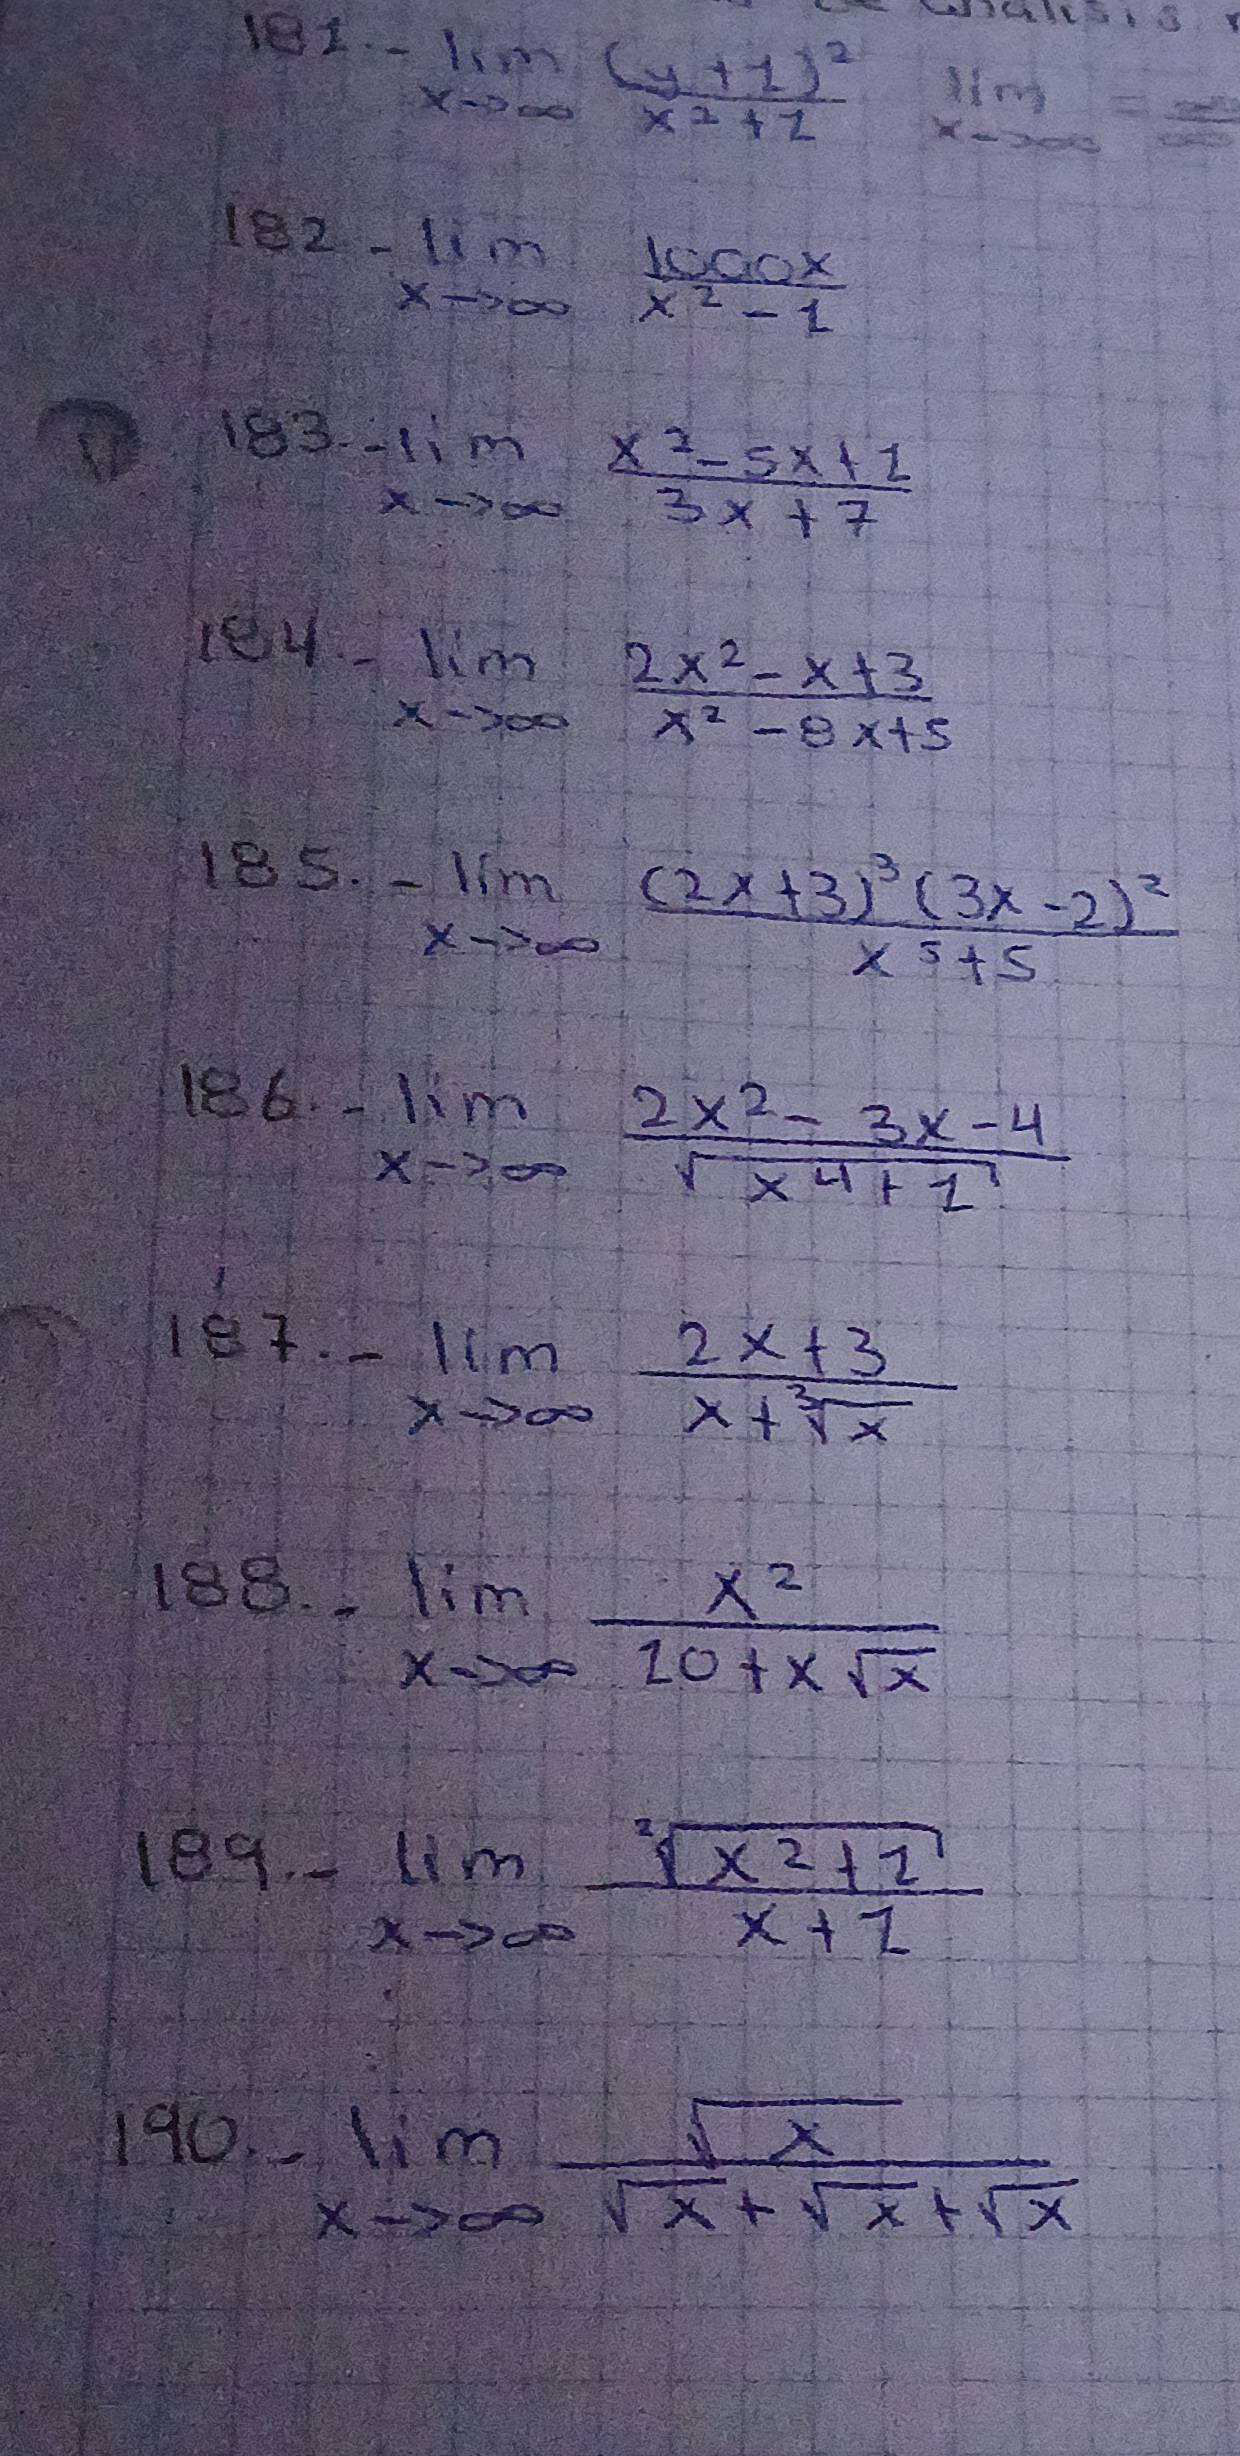 analisis
181.- lim (y+1)² / x²+1 lim = ∞/∞
x→∞ x→∞
182.- lim 1000x / x²-1
x→∞
183.- lim x²-5x+1 / 3x+7
x→∞
184.- lim 2x²-x+3 / x²-8x+5
x→∞
185.- lim (2x+3)³(3x-2)² / x⁵+5
x→∞
186.- lim 2x²-3x-4 / √(x⁴+1)
x→∞
187.- lim 2x+3 / x+∛x
x→∞
188.- lim x² / 10+x√x
x→∞
189.- lim ²√(x²+1) / x+1
x→∞
190.- lim √x / √x+√x+√x
x→∞